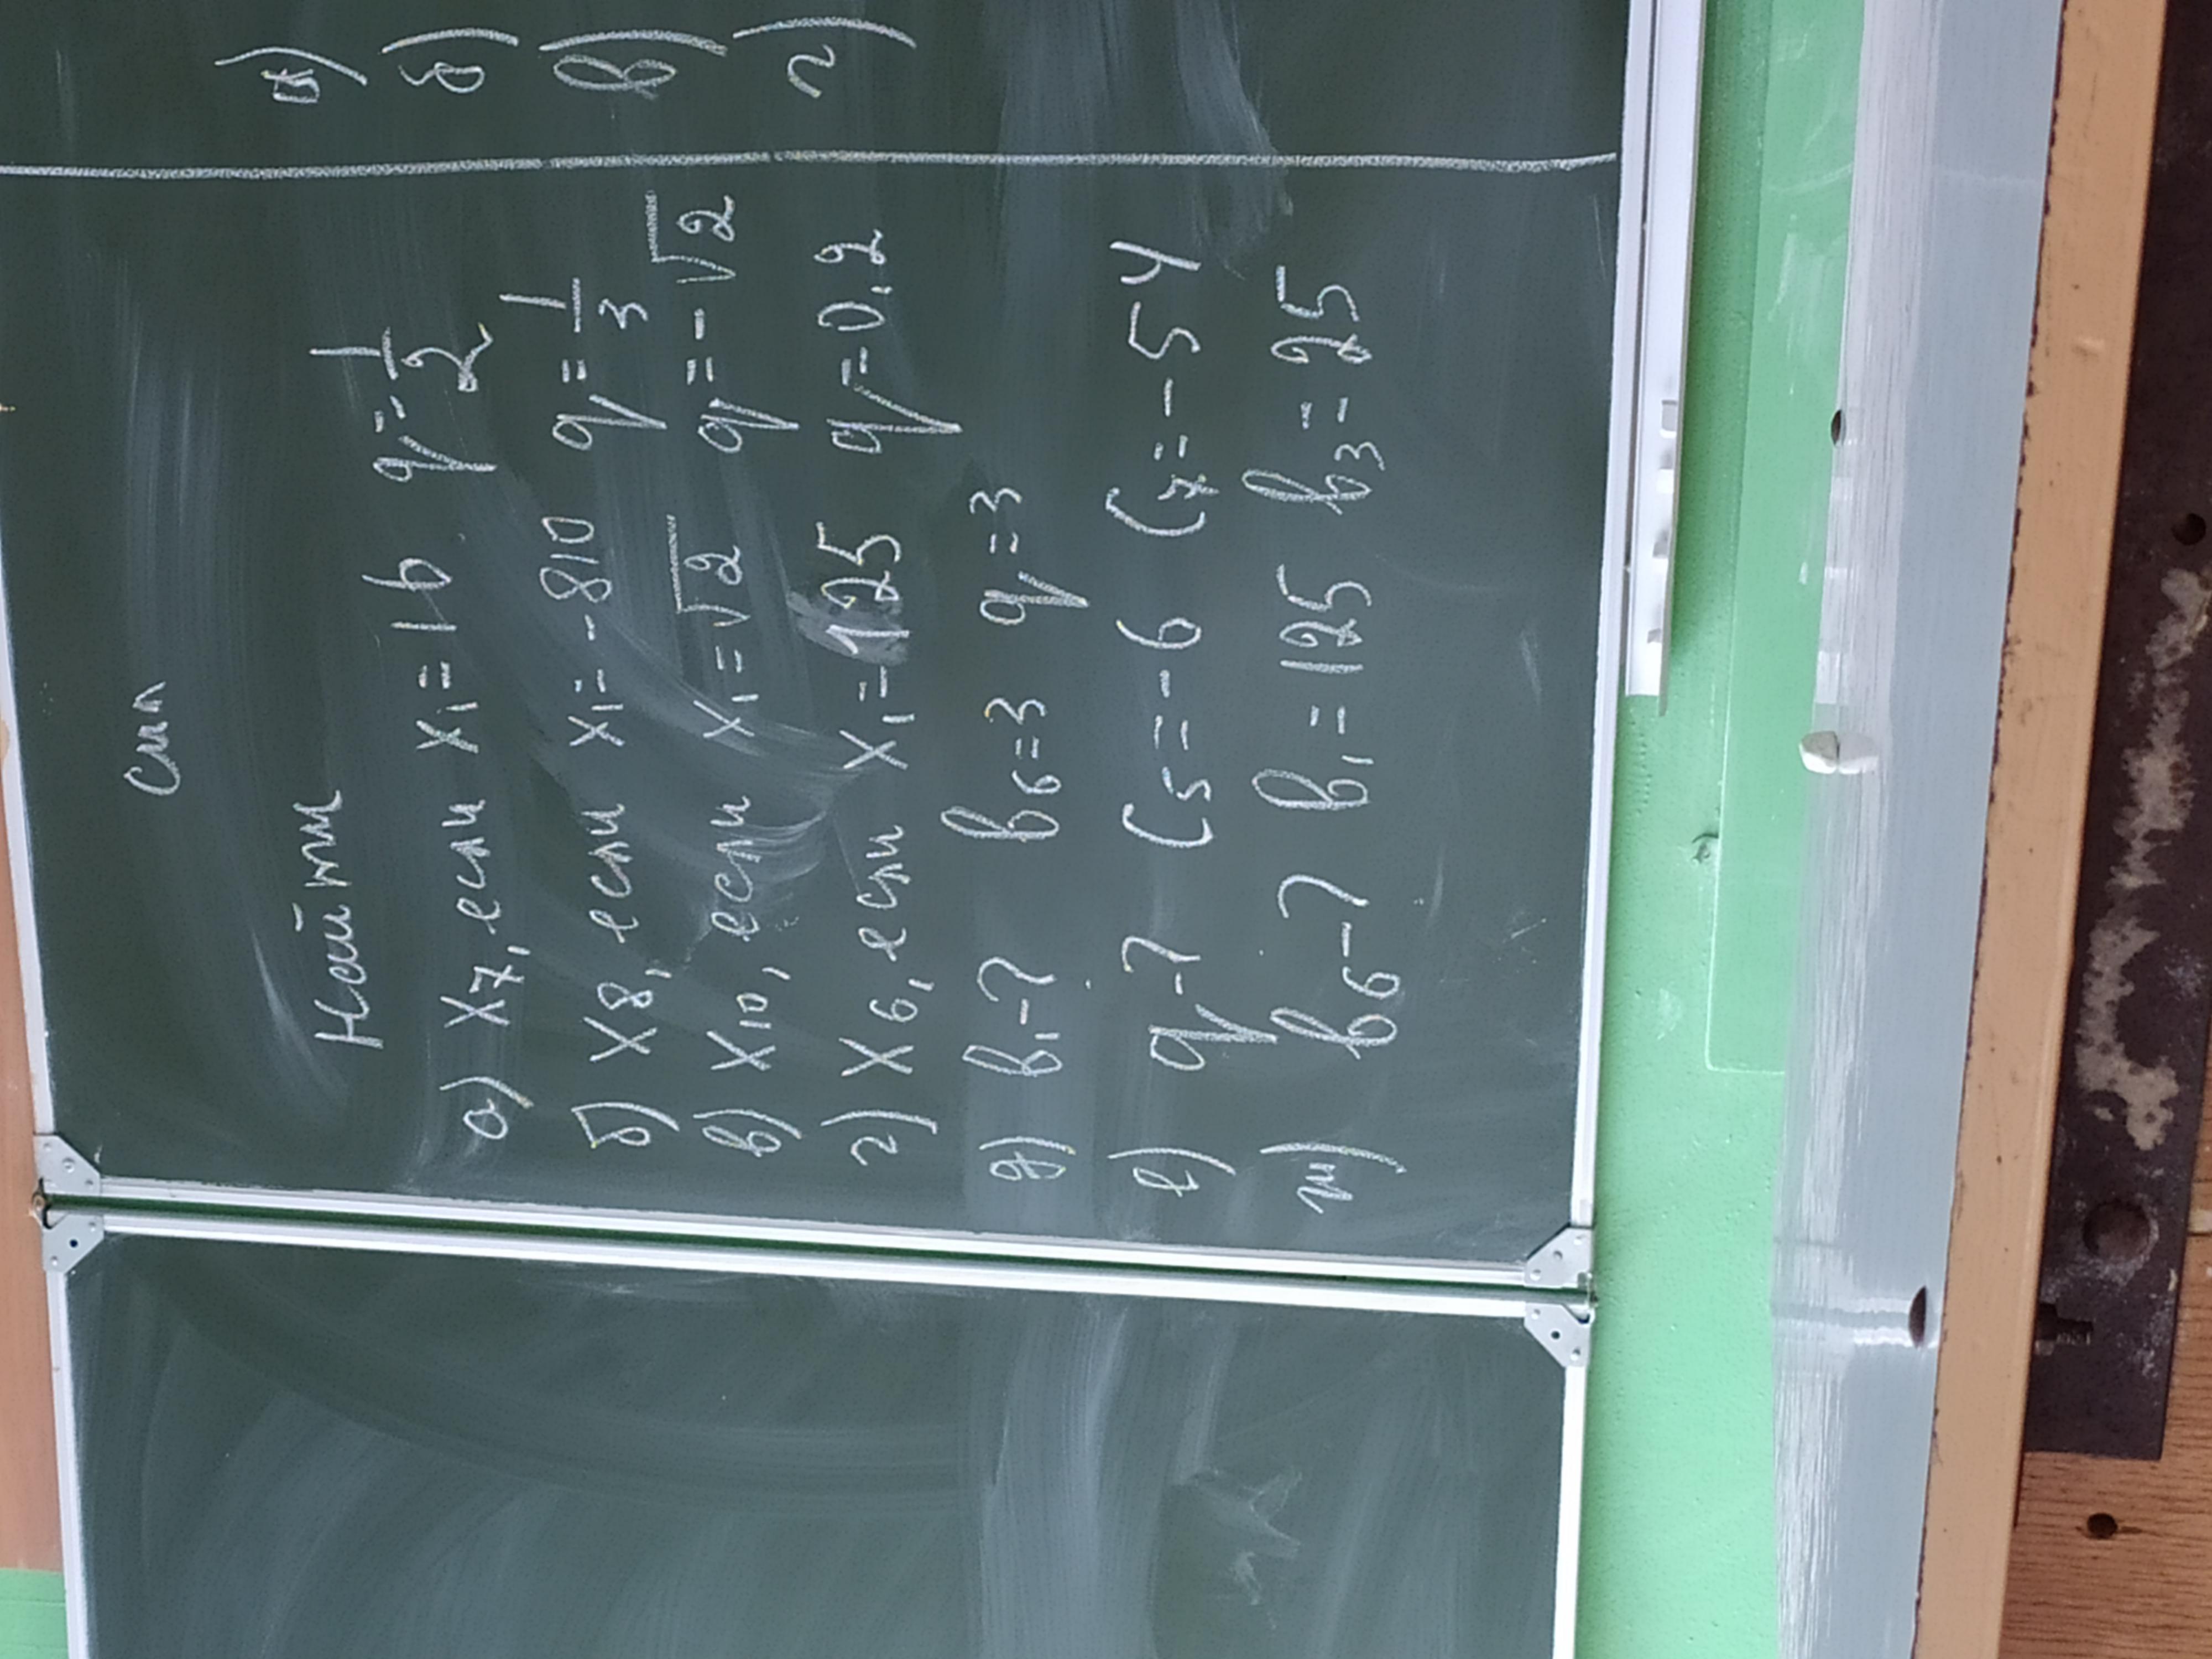 Найти
а) x₇, если x₁=16 q=1/2
б) x₈, если x₁=-810 q=1/3
в) x₁₀, если x₁=√2 q=-√2
г) x₆, если x₁=125 q=0,2
д) b₁-? b₆=3 q=3
е) q-? C₅=-6 C₇=-54
ж) b₆-? b₁=125 b₃=25
а)
б)
в)
г)